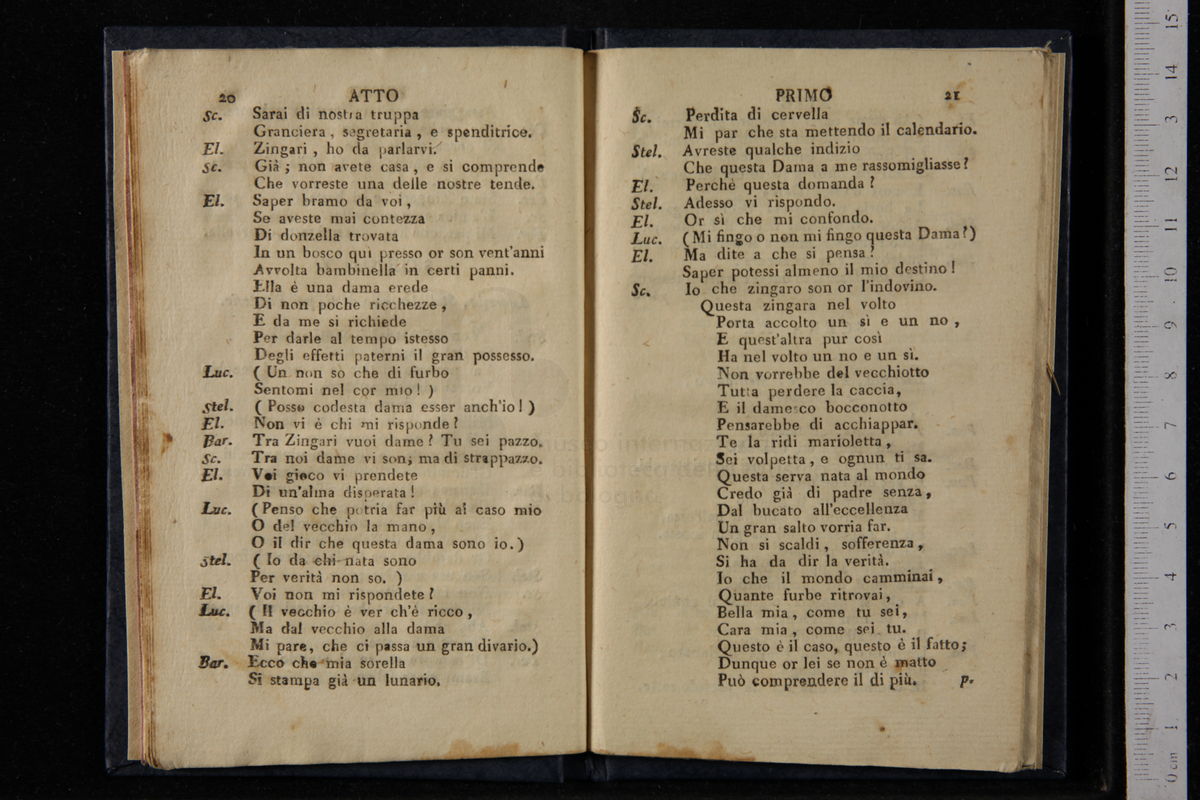 20 ATTO
Sc. Sarai di nostra truppa
Granciera, segretaria, e spenditrice.
El. Zingari, ho da parlarvi.
Sc. Già; non avete casa, e si comprende
Che vorreste una delle nostre tende.
El. Saper bramo da voi,
Se aveste mai contezza
Di donzella trovata
In un bosco qui presso or son vent'anni
Avvolta bambinella in certi panni.
Ella è una dama erede
Di non poche ricchezze,
E da me si richiede
Per darle al tempo istesso
Degli effetti paterni il gran possesso.
Luc. (Un non so che di furbo
Sentomi nel cor mio!)
Stel. (Posso codesta dama esser anch'io!)
El. Non vi è chi mi risponde?
Bar. Tra Zingari vuoi dame? Tu sei pazzo.
Sc. Tra noi dame vi son; ma di strappazzo.
El. Voi gioco vi prendete
Di un'alma disperata!
Luc. (Penso che potria far più al caso mio
O del vecchio la mano,
O il dir che questa dama sono io.)
Stel. (Io da chi nata sono
Per verità non so.)
El. Voi non mi rispondete?
Luc. (Il vecchio è ver ch'è ricco,
Ma dal vecchio alla dama
Mi pare, che ci passa un gran divario.)
Bar. Ecco che mia sorella
Si stampa già un lunario.
PRIMO 21
Sc. Perdita di cervella
Mi par che sta mettendo il calendario.
Stel. Avreste qualche indizio
Che questa Dama a me rassomigliasse?
El. Perchè questa domanda?
Stel. Adesso vi rispondo.
El. Or sì che mi confondo.
Luc. (Mi fingo o non mi fingo questa Dama?)
El. Ma dite a che si pensa?
Saper potessi almeno il mio destino!
Sc. Io che zingaro son or l'indovino.
Questa zingara nel volto
Porta accolto un sì e un no,
E quest'altra pur così
Ha nel volto un no e un sì.
Non vorrebbe del vecchiotto
Tutta perdere la caccia,
E il damesco bocconotto
Pensarebbe di acchiappar.
Te la ridi marioletta,
Sei volpetta, e ognun ti sa.
Questa serva nata al mondo
Credo già di padre senza,
Dal bucato all'eccellenza
Un gran salto vorria far.
Non si scaldi, sofferenza,
Si ha da dir la verità.
Io che il mondo camminai,
Quante furbe ritrovai,
Bella mia, come tu sei,
Cara mia, come sei tu.
Questo è il caso, questo è il fatto;
Dunque or lei se non è matto
Può comprendere il di più. p.